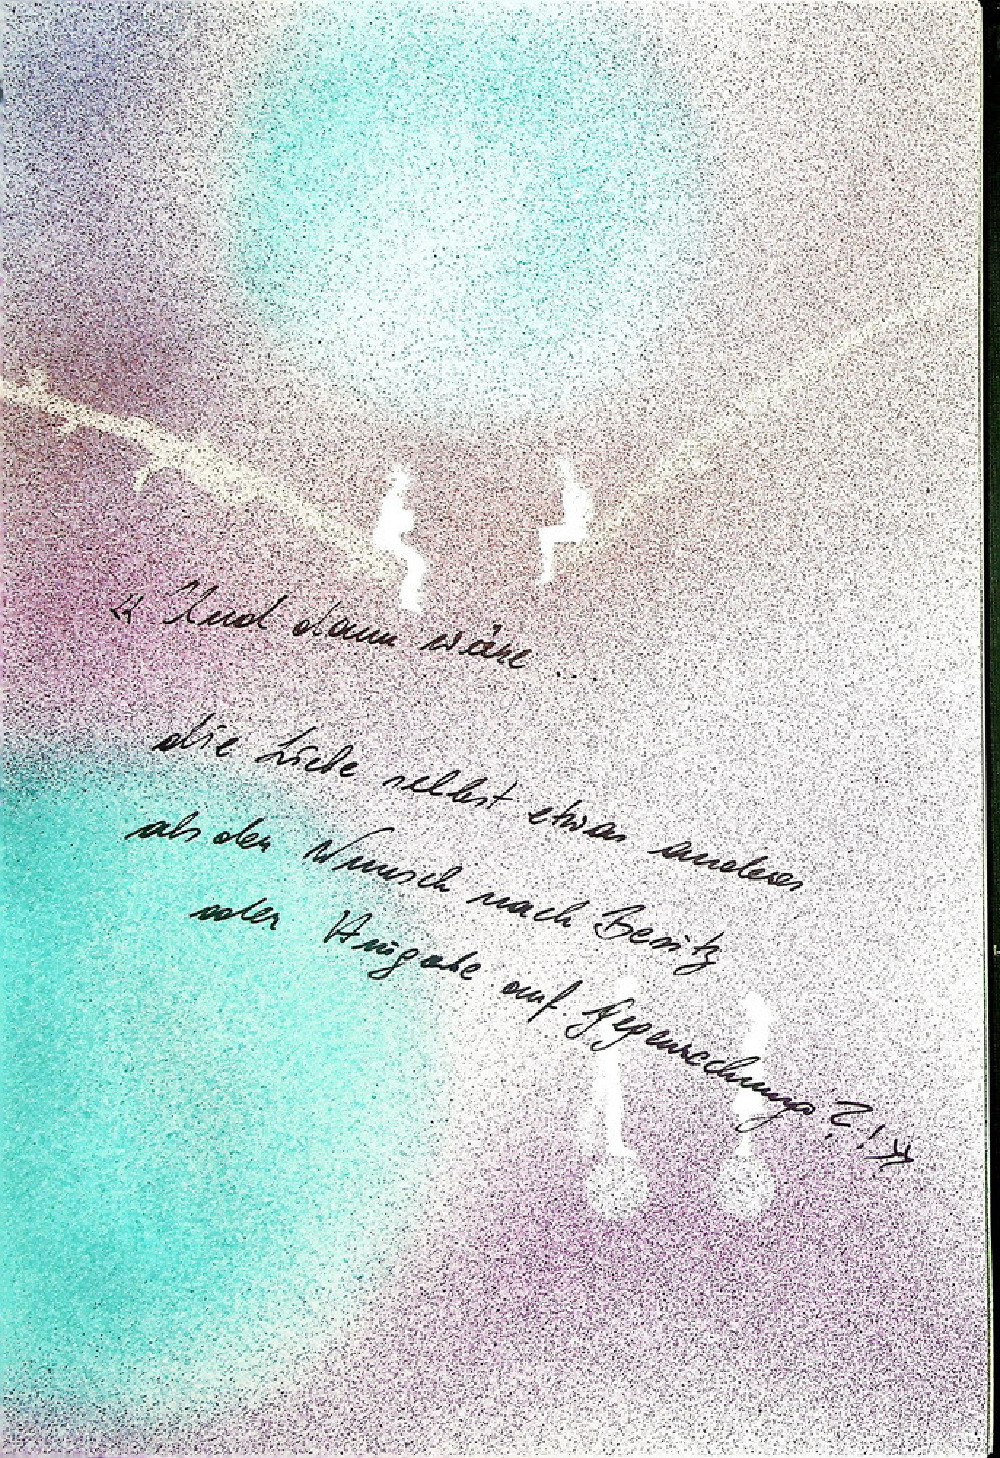 « Und dann wäre ...
die Liebe selbst etwas anderes
als der Wunsch nach Besitz
oder auf Gegenrechnung?! »